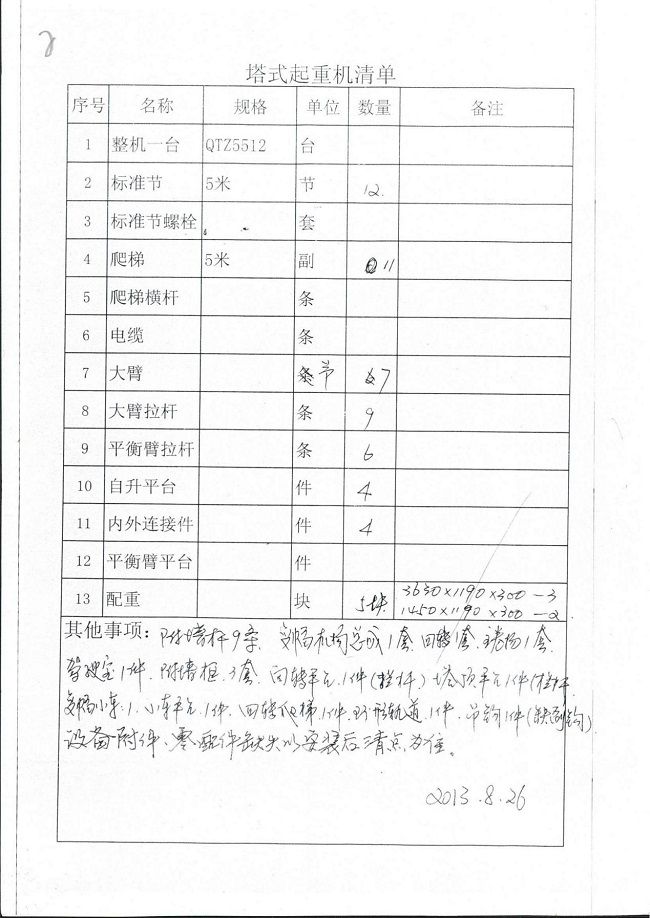 塔式起重机清单
序号 名称 规格 单位 数量 备注
1 整机一台 QTZ5512 台
2 标准节 5米 节 12.
3 标准节螺栓 套
4 爬梯 5米 副 11
5 爬梯横杆 条
6 电缆 条
7 大臂 节 7
8 大臂拉杆 条 9
9 平衡臂拉杆 条 6
10 自升平台 件 4
11 内外连接件 件 4
12 平衡臂平台 件
13 配重 块 5块 3630×1190×300—3
1450×1190×300—2
其他事项：附墙杆9条、变幅机构总成1套、回转1套、1套、
驾驶室1件、附墙框3套、回转平台1件(栏杆)塔顶平台1件(栏杆
变幅小车:1、小车平台1件、回转爬梯1件、轨道1件、吊钩1件(缺
设备附件、零配件缺失以安装后清点为准。
2013.8.26